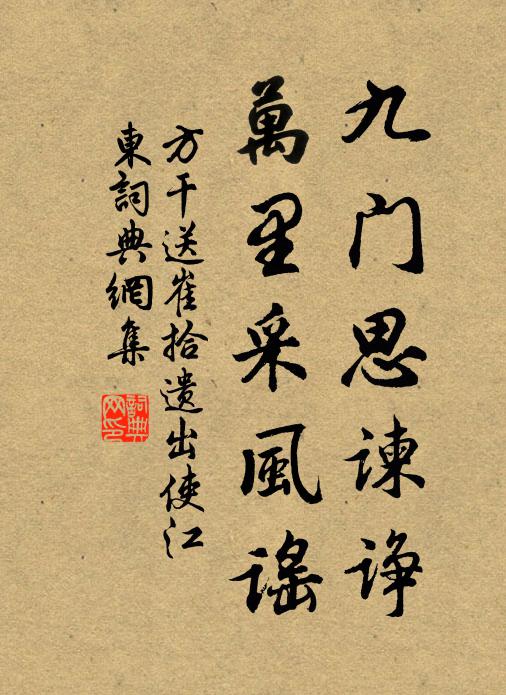 九门思谏诤
萬里采風謠
方干送崔拾遗出使江
東詞典網集
詞典
网印